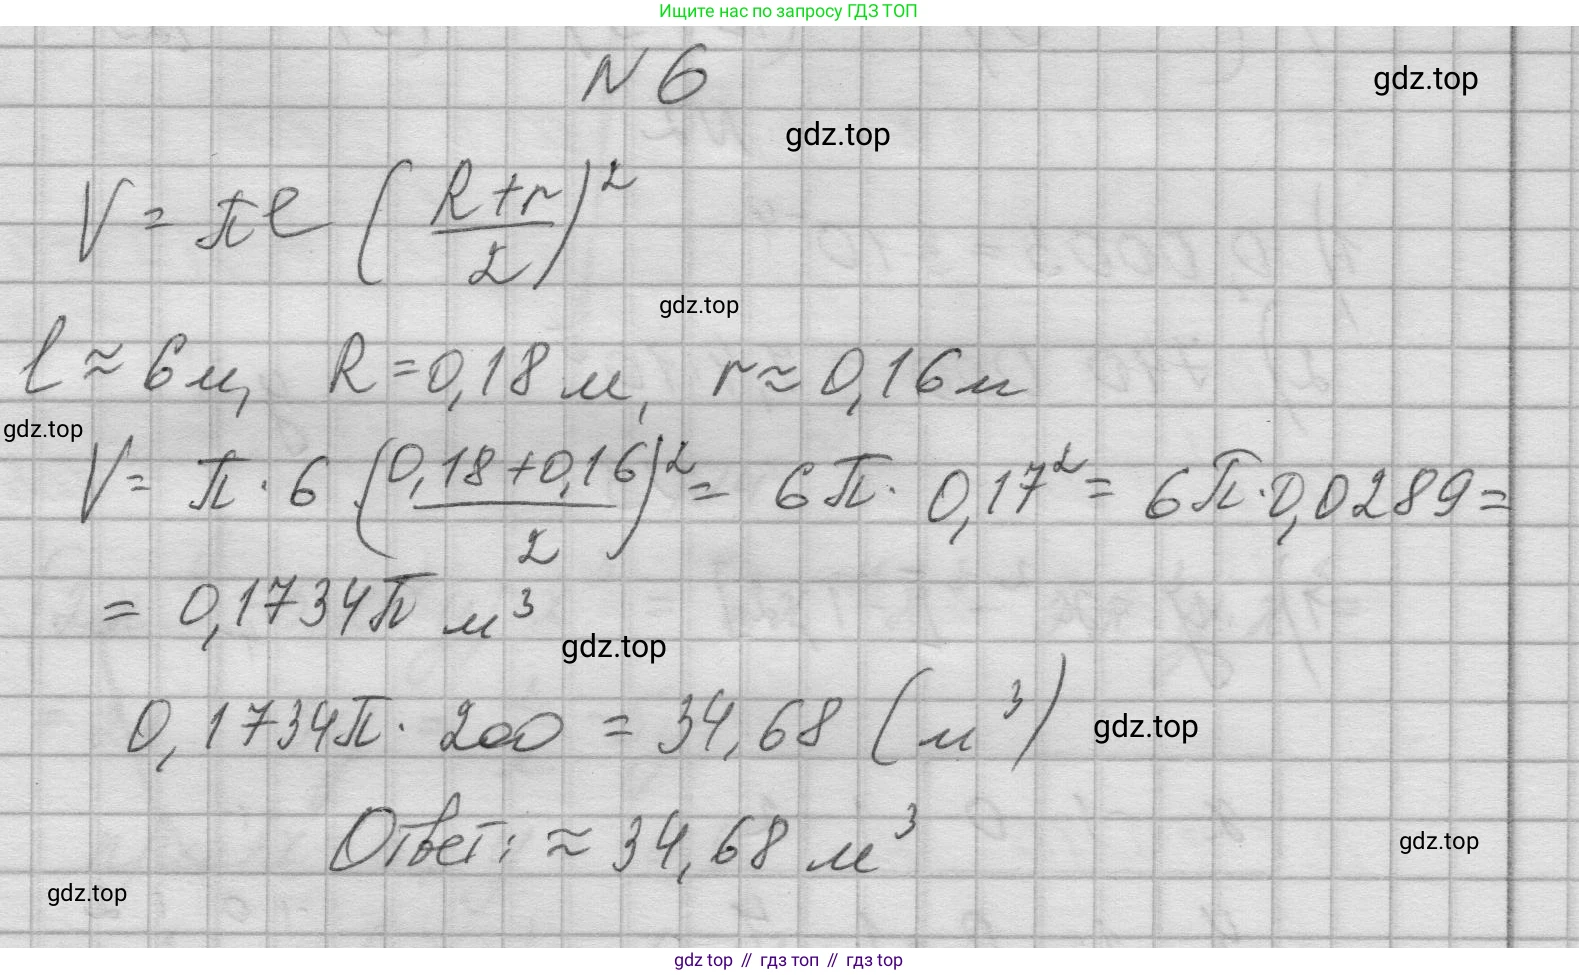 Ищите нас по запросу ГДЗ ТОП
N 6
gdz.top
gdz.top
V = πl ((R+r)/2)²
gdz.top
l ≈ 6 м, R = 0,18 м, r ≈ 0,16 м
gdz.top
V = π · 6 ((0,18+0,16)/2)² = 6π · 0,17² = 6π · 0,0289 =
= 0,1734π м³
gdz.top
0,1734π · 200 = 34,68 (м³)
gdz.top
Ответ: ≈ 34,68 м³
gdz.top
gdz.top
gdz top // гдз топ // гдз top